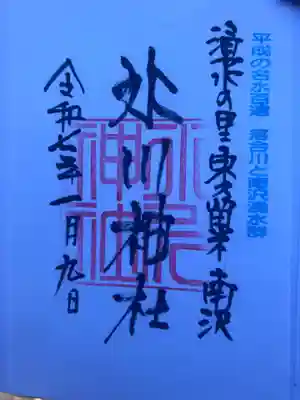 平成の名水百選 落合川と南沢湧水群
湧水の里 東久留米 南沢
氷川神社
氷川
神社
令和七年一月九日